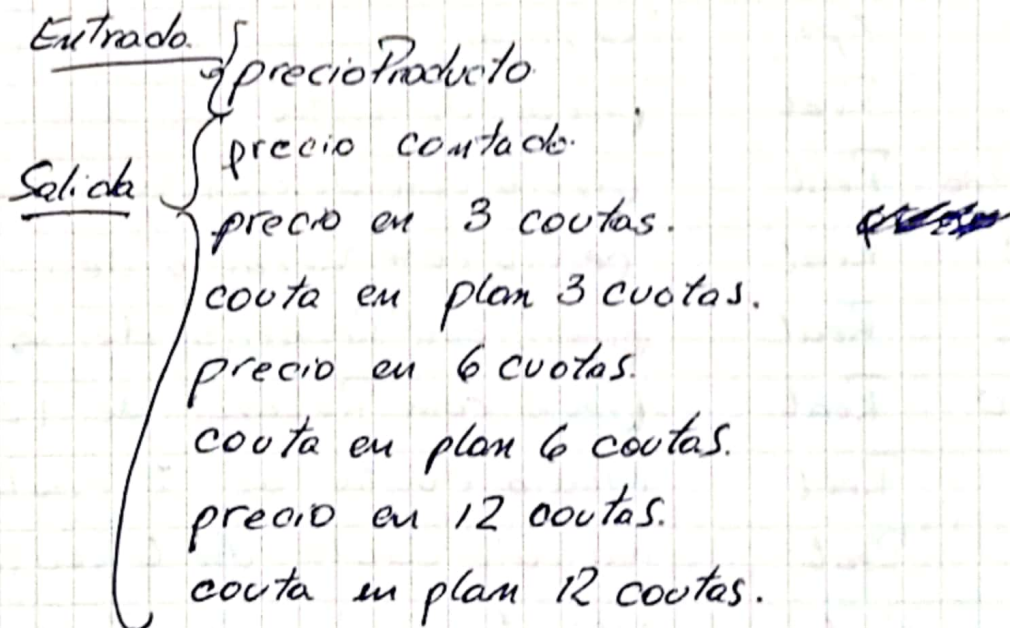 Entrada
precioProducto
Salida
precio contado.
precio en 3 coutas.
couta en plan 3 cuotas.
precio en 6 cuotas.
couta en plan 6 coutas.
precio en 12 coutas.
couta en plan 12 coutas.